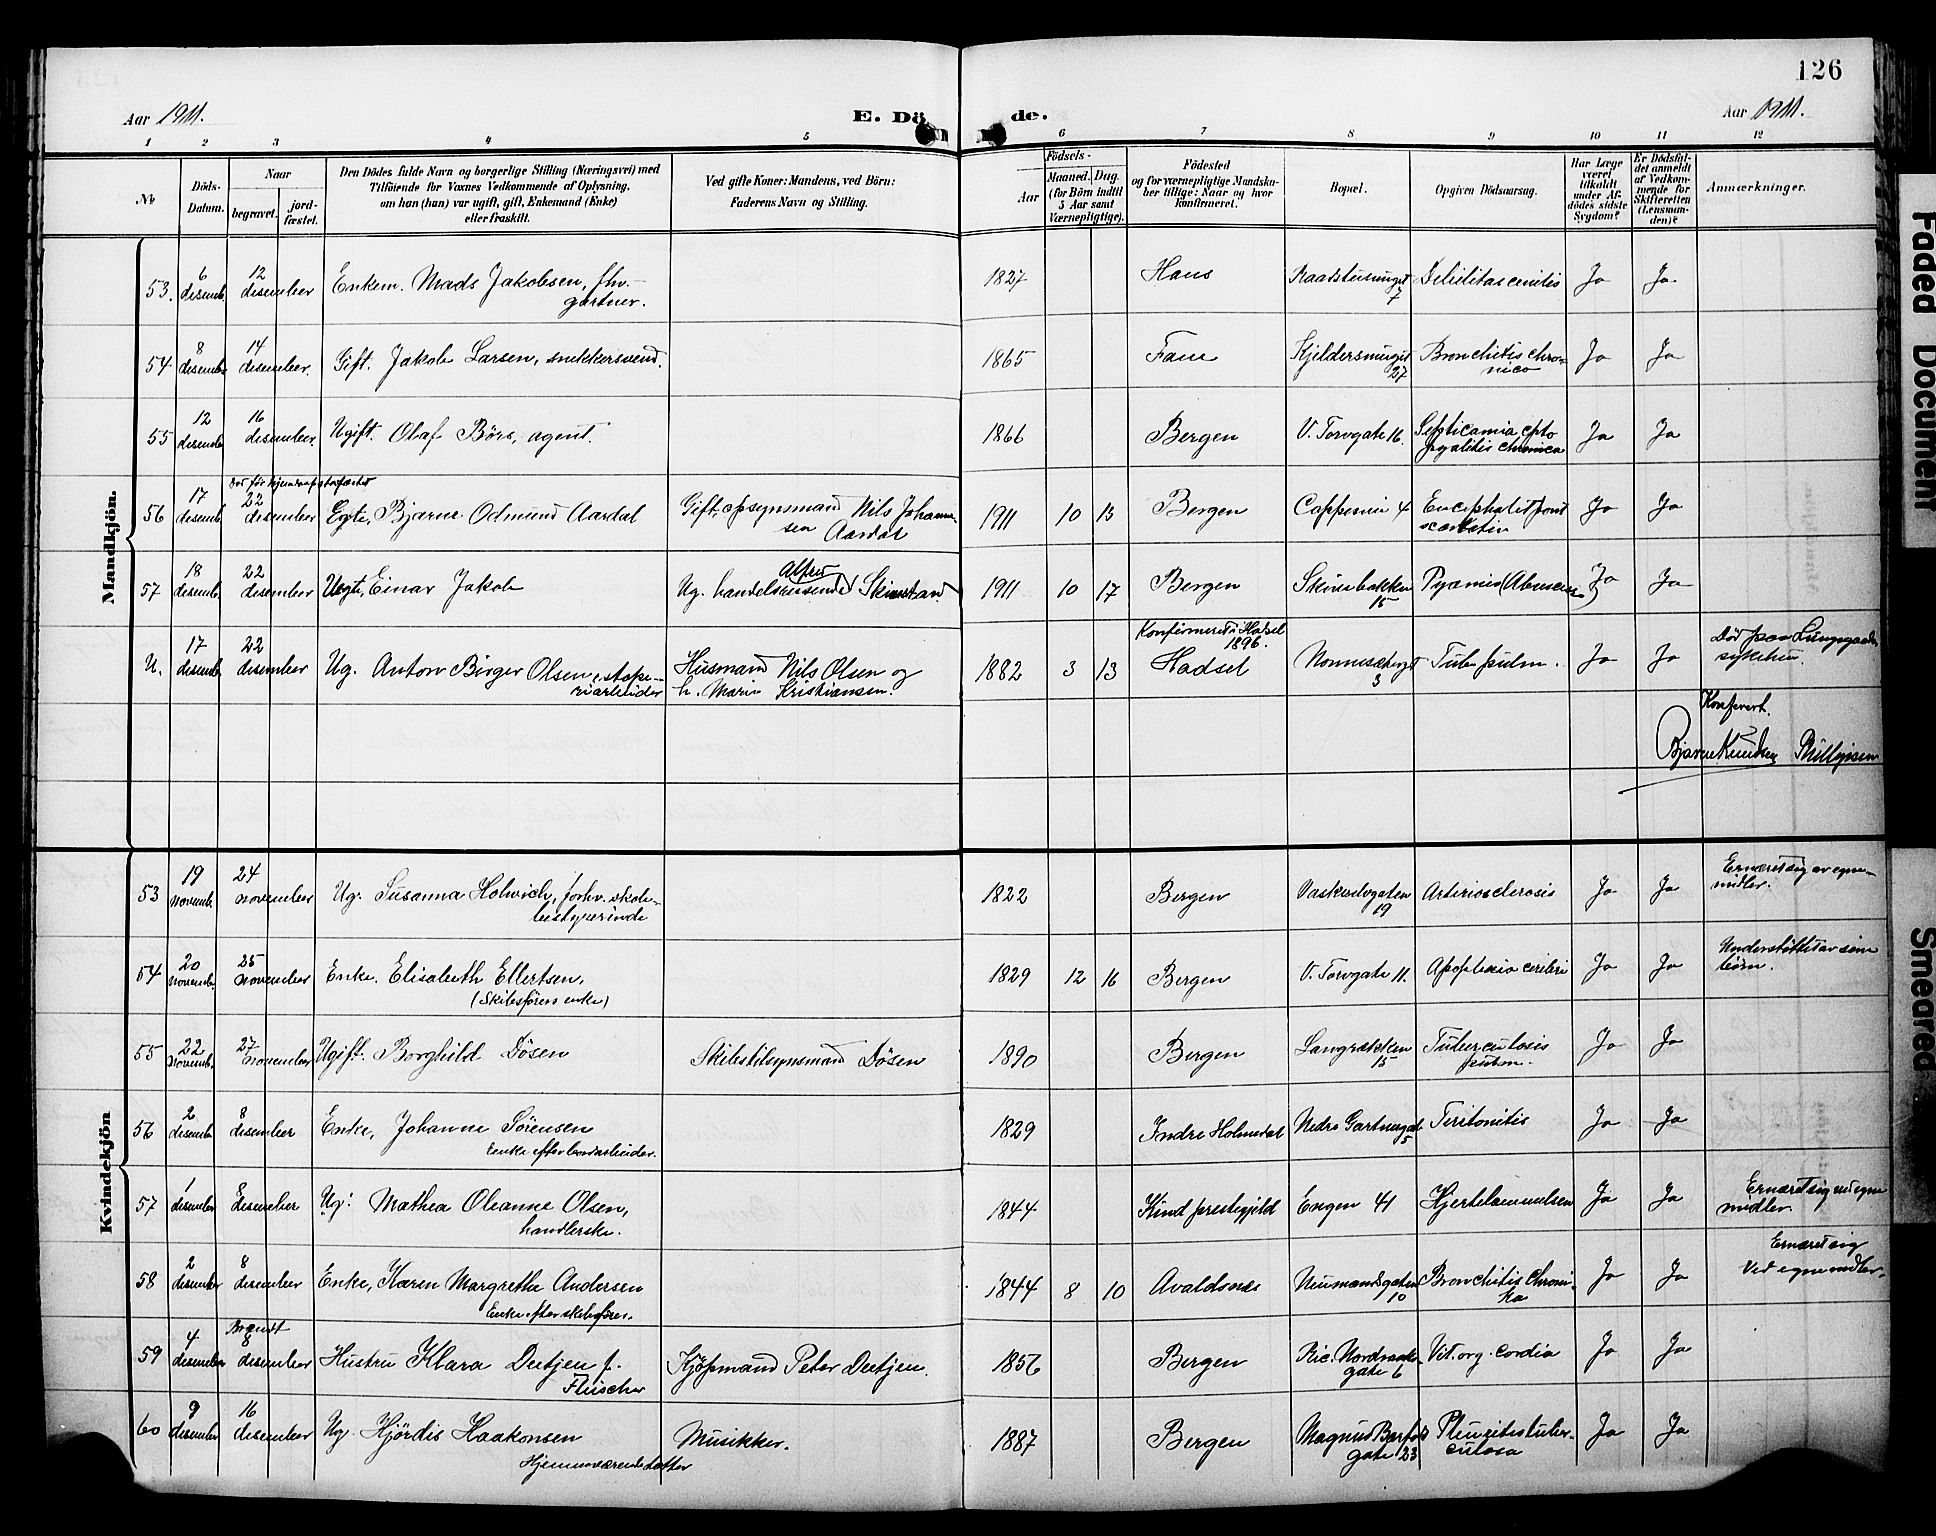 126
Aar 1911.
E. Dö
de.
Aar 1911.
1 2 3 4 5 6 7 8 9 10 11 12
No
Döds-Datum.
Naar
begravet.
jord-fæstet.
Den Dödes fulde Navn og borgerlige Stilling (Næringsvei) med
Tilföiende for Voxnes Vedkommende af Oplysning,
om han (hun) var ugift, gift, Enkemand (Enke)
eller fraskilt.
Ved gifte Koner: Mandens, ved Börn:
Faderens Navn og Stilling.
Födsels-
Aar
Maaned. Dag.
(for Börn indtil
5 Aar samt
Værnepligtige).
Födested
og for værnepligtige Mandska-
ber tillige: Naar og hvor
konfirmeret.
Bopæl.
Opgiven Dödsaarsag.
Har Læge
været
tilkaldt
under Af-
dödes sidste
Sygdom?
Er Dödsfal-
det anmeldt
af Vedkom-
mende for
Skifteretten
(Lensman-
den)?
Anmærkninger.
Mandkjön.
53. 6 desemb. 12 desember Enkem. Mads Jakobsen, fhv. gartner. 1827 Haus Raadstusmuget 7 Ja Ja
54 8 desemb. 14 desember. Gift. Jakob Larsen, snekkersvend. 1865 Fane Kjeldersmuget 27 Bronchitis chronica Ja Ja
55 12 desemb. 16 desember. Ugift. Olaf Börs, agent. 1866 Bergen V. Torvgate 16. chronica Ja Ja
56 17 desemb. 22 desember Egte, Bjarne Odmund Aardal Gift, opsynsmand Nils Johannessen Aardal 1911 10 13 Bergen Cappesmu 4 Ja Ja
57 18 desemb. 22 desember Uegte, Einar Jakob Ug. handelsreisende Alfred 1911 10 17 Bergen 15 Pyæmie Ja Ja
U. 17 desemb. 22 desember Ug. Anton Birger Olsen, Husmand Nils Olsen og h. Marie Kristiansen. 1882 3 13 Konfirmeret i Hadsel 1896. Hadsel 3 Tub. pulm. Ja Ja Död paa Lungegaardssykehus.
Konfevert.
Bjarne Knudsen Phillipsen
Kvindekjön
53 19 novemb. 24 november Ug. Susanna Holwich, forhv. skolebestyrerinde 1822 Bergen Vaskerelvgaten 19 Arteriosclerosis Ja Ja Ernæret sig av egne midler.
54 20 novemb. 25 november Enke. Elisabeth Ellertsen, (Skibsförers enke) 1829 12 16 Bergen V. Torvgate 11. Apoplexia cerebri Ja Ja Understöttet av sine börn.
55 22 novemb. 27 november Ugift. Borghild Dösen Skibstilsynsmand Dösen 1890 Bergen Langrækken 15 Tuberculosis pulm. Ja Ja
56 2 desemb. 8 desember Enke, Johanne Sörensen Enke efter bordarbeider. 1829 Indre Holmedal Nedre 5 Peritonitis Ja Ja
57 1 desember 8 desember Ug: Mathea Oleanne Olsen, handlerske. 1844 Kind prestegjeld Engen 41 Hjertelammelsen Ja Ja Ernæret sig ved egne midler.
58 2 desember 8 desember Enke, Karen Margrethe Andersen Enke efter skibsförer. 1844 8 10 Avaldsnes Neumandsgaten 10 Bronchitis chronika Ja Ja Ernæret sig ved egne midler.
59 4 desember Brændt 8 desember Hustru Klara Deetjen f. Fleischer Kjöpmand Peter Deetjen. 1856 Bergen Ric. Nordraaks gate 6 Vit. org. cordia Ja Ja
60 9 desember 16 desember Ug. Hjördis Haakonsen Hjemmeværende datter Musikker. 1887 Bergen Magnus Barfods gate 23 Pleuritis tuberculosa Ja Ja
Faded Document
Smeared